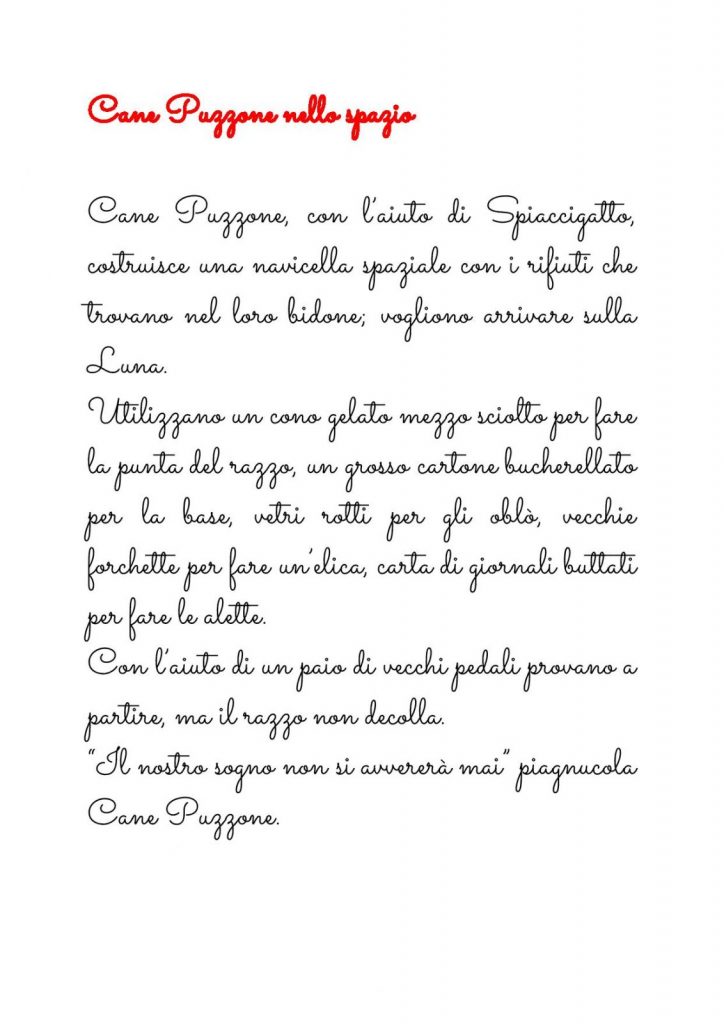 Cane Puzzone nello spazio
Cane Puzzone, con l'aiuto di Spiaccigatto,
costruisce una navicella spaziale con i rifiuti che
trovano nel loro bidone; vogliono arrivare sulla
Luna.
Utilizzano un cono gelato mezzo sciolto per fare
la punta del razzo, un grosso cartone bucherellato
per la base, vetri rotti per gli oblò, vecchie
forchette per fare un'elica, carta di giornali buttati
per fare le alette.
Con l'aiuto di un paio di vecchi pedali provano a
partire, ma il razzo non decolla.
“Il nostro sogno non si avvererà mai” piagnucola
Cane Puzzone.